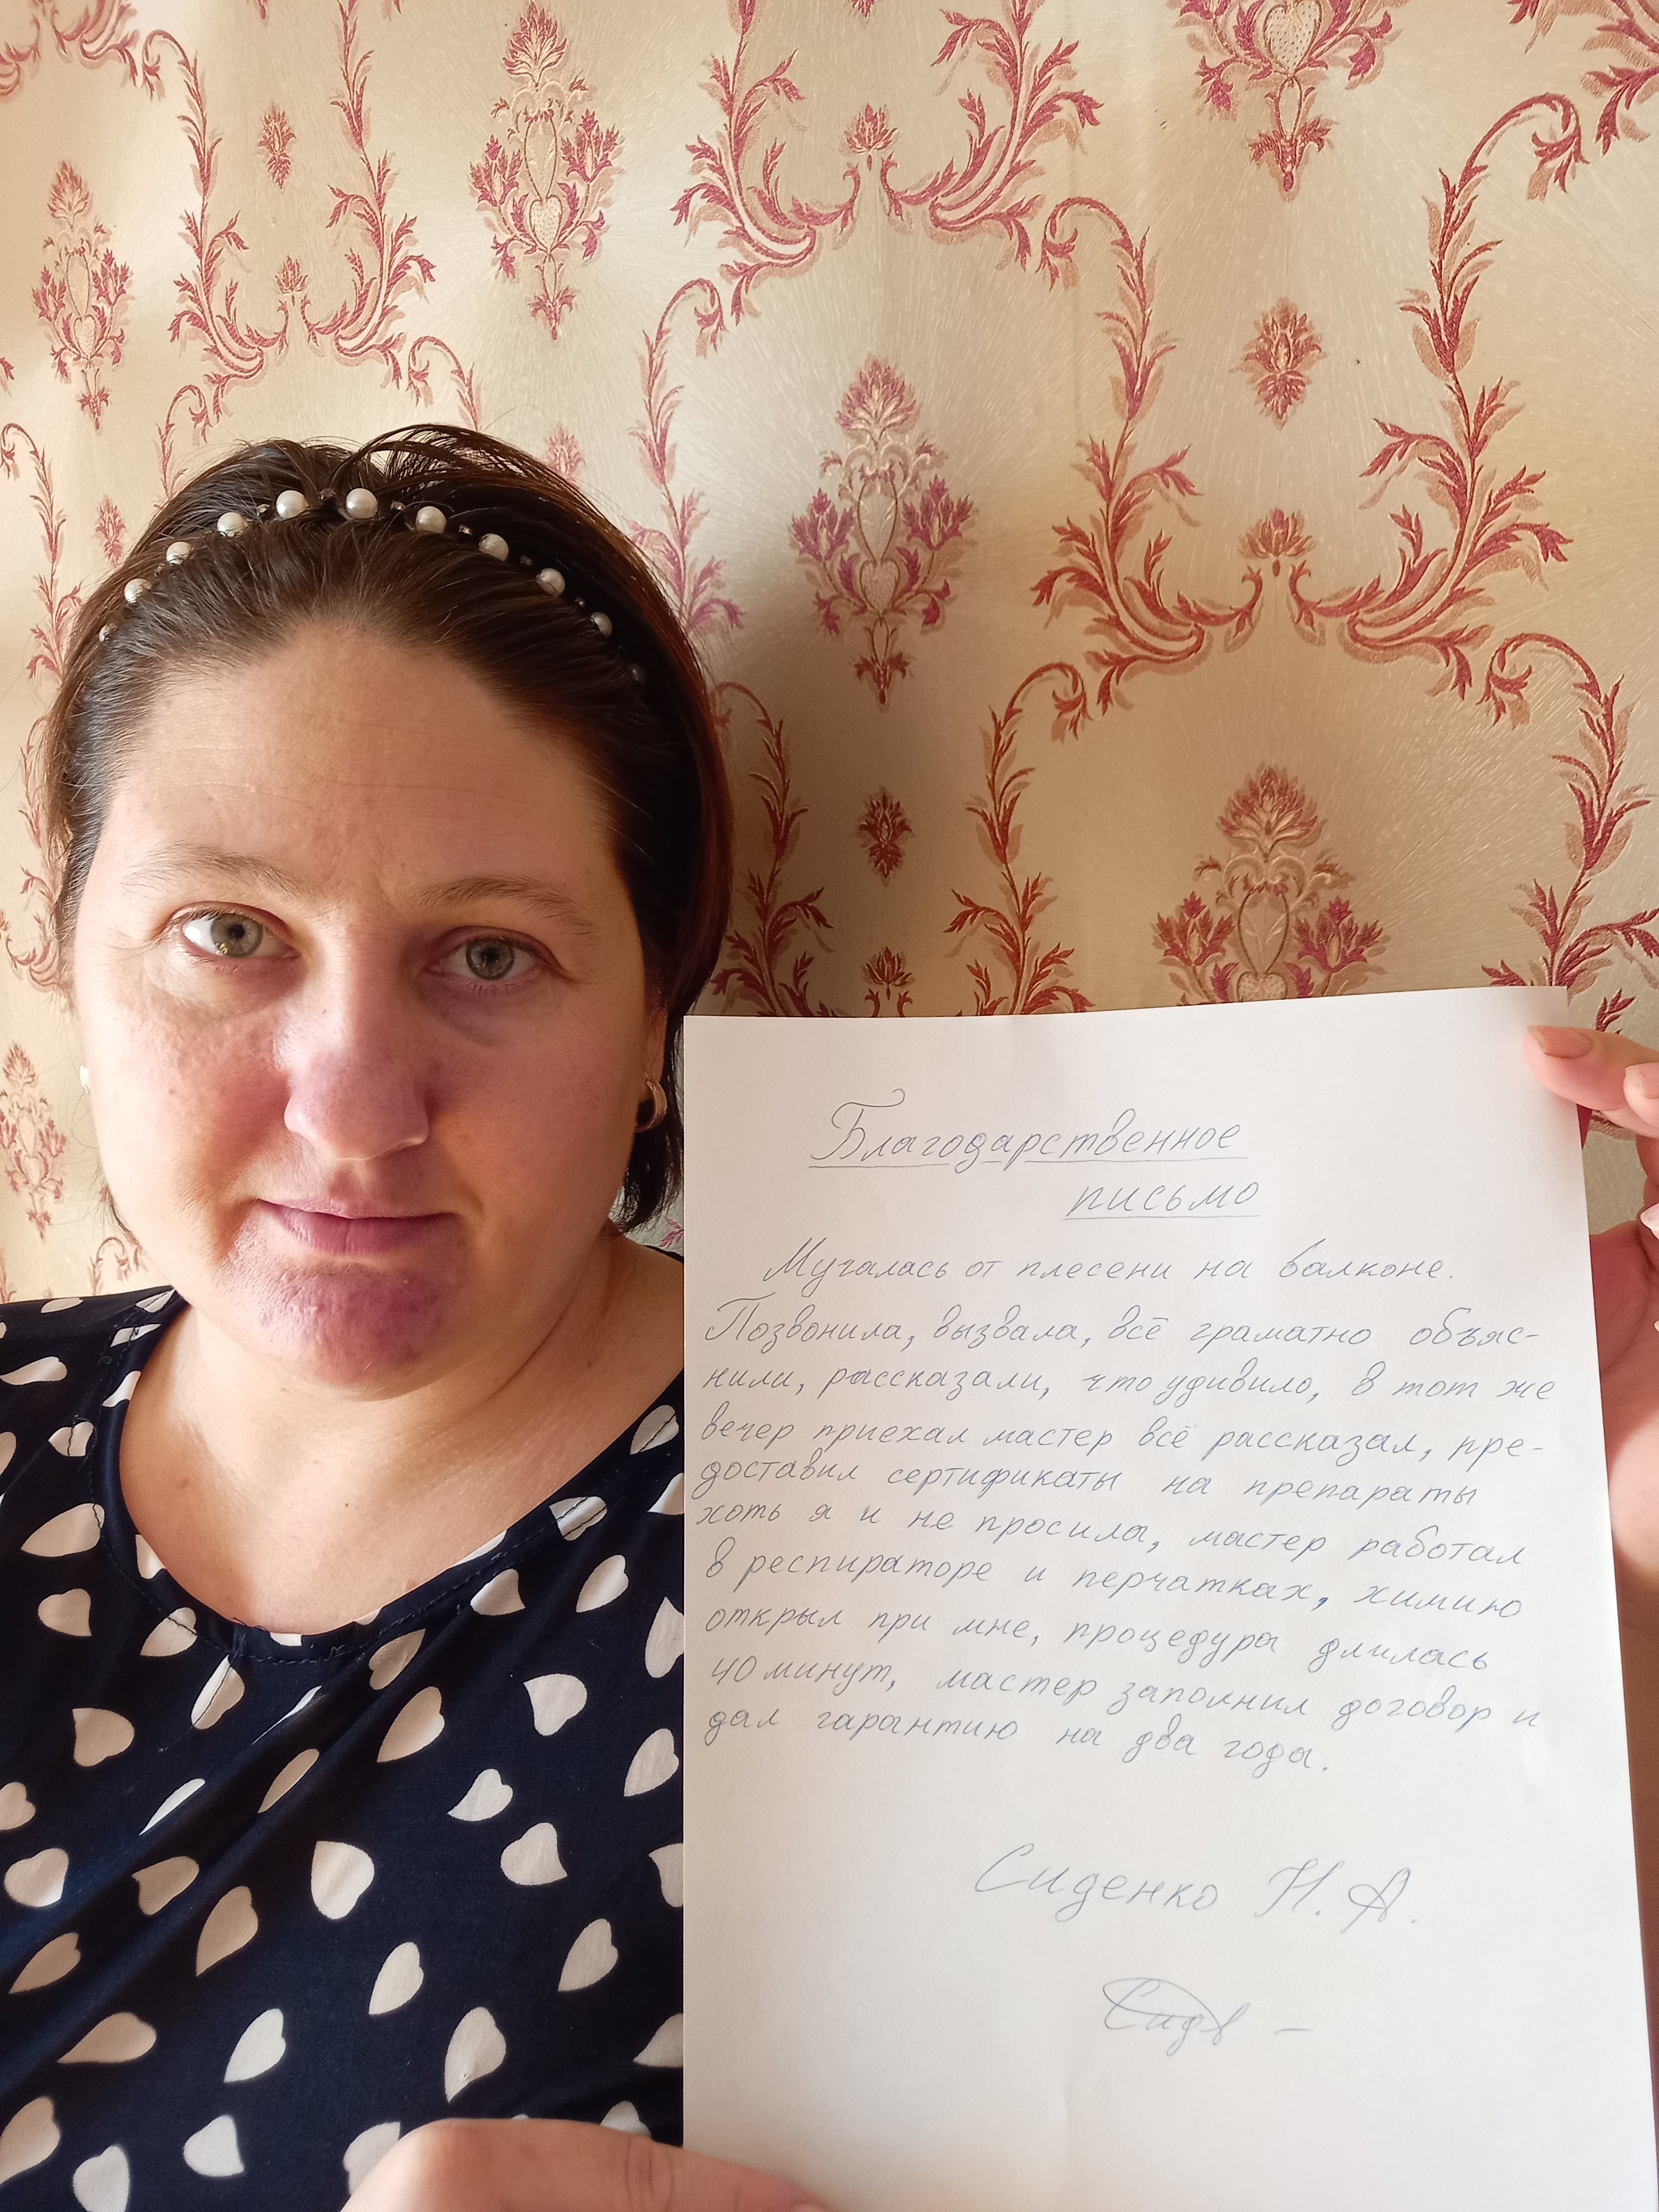 Благодарственное
письмо
Мучалась от плесени на балконе.
Позвонила, вызвала, всё граматно объяс-
нили, рассказали, что удивило, в тот же
вечер приехал мастер всё рассказал, пре-
доставил сертификаты на препараты
хоть я и не просила, мастер работал
в респираторе и перчатках, химию
открыл при мне, процедура длилась
40 минут, мастер заполнил договор и
дал гарантию на два года.
Сиденко Н. А.